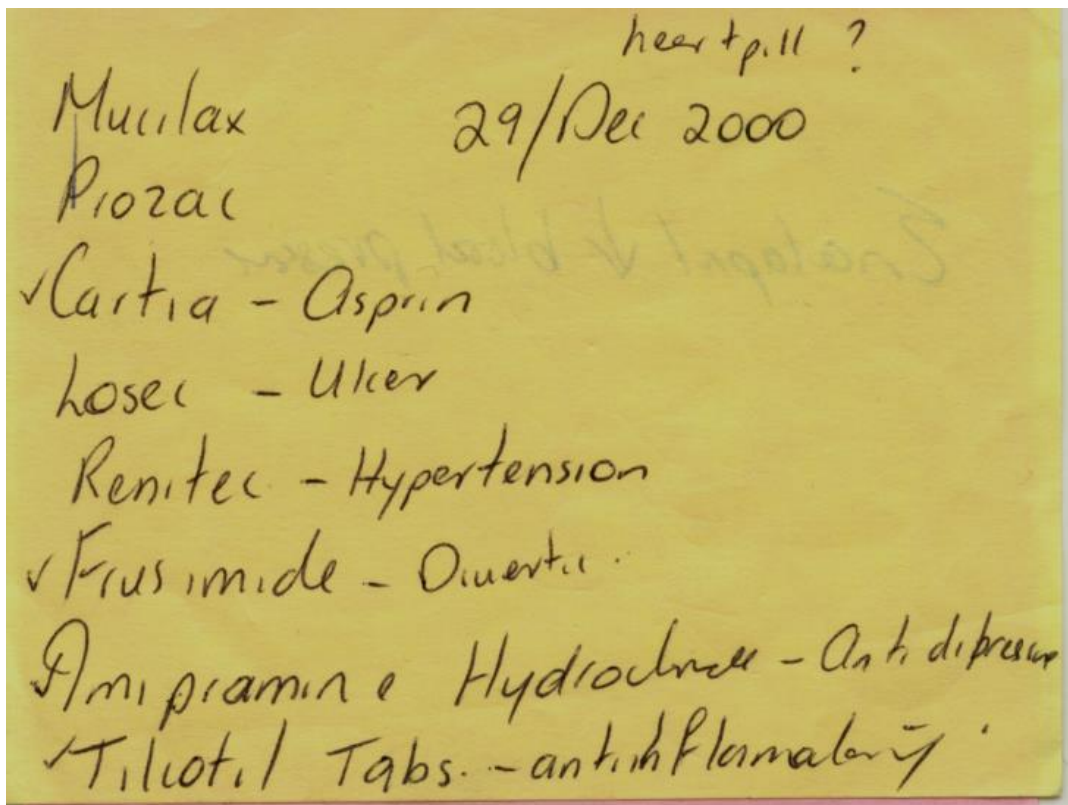 heart pill ?
Mucilax 29/Dec 2000
Prozac
✓Cartia - Asprin
Losec - Ulcer
Renitec - Hypertension
✓Frusimide - Diuertic.
Hydrochnde - Antidipressive
✓Tilcotil Tabs. - antihflammatory.